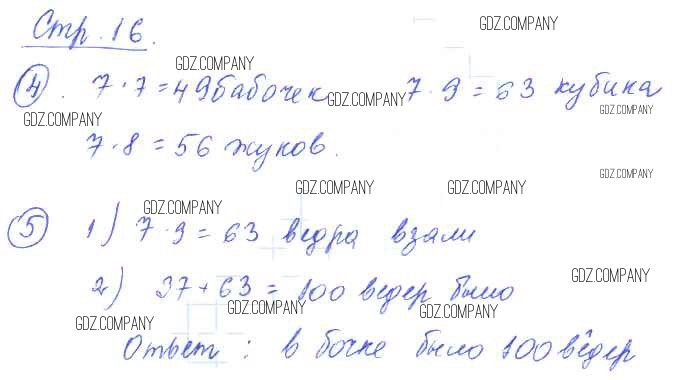 Стр. 16.
GDZ.COMPANY
GDZ.COMPANY
4. 7·7=49 бабочек 7·9=63 кубика
GDZ.COMPANY
GDZ.COMPANY
GDZ.COMPANY
7·8=56 жуков.
GDZ.COMPANY
GDZ.COMPANY
GDZ.COMPANY
GDZ.COMPANY
5 1) 7·9=63 ведра взали
GDZ.COMPANY
2) 37+63=100 ведер было
GDZ.COMPANY
GDZ.COMPANY
GDZ.COMPANY
Ответ: в бочке было 100 вёдер